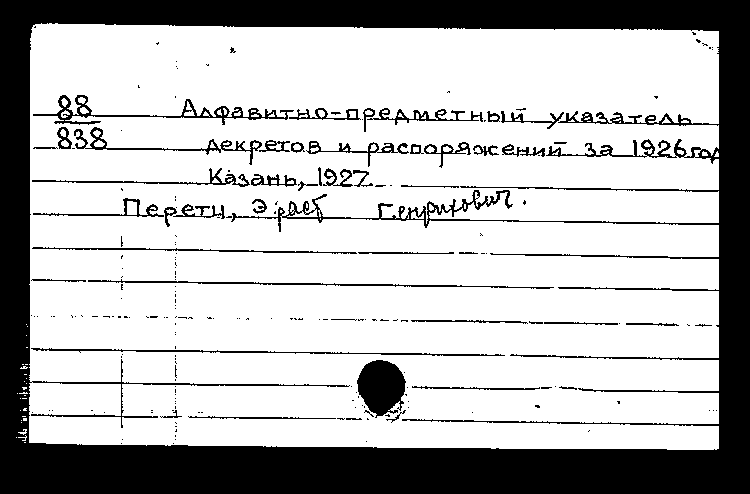 88
838
Алфавитно-предметный указатель
декретов и распоряжений за 1926 год
Казань, 1927.
Перетц, Эраст Генрихович.